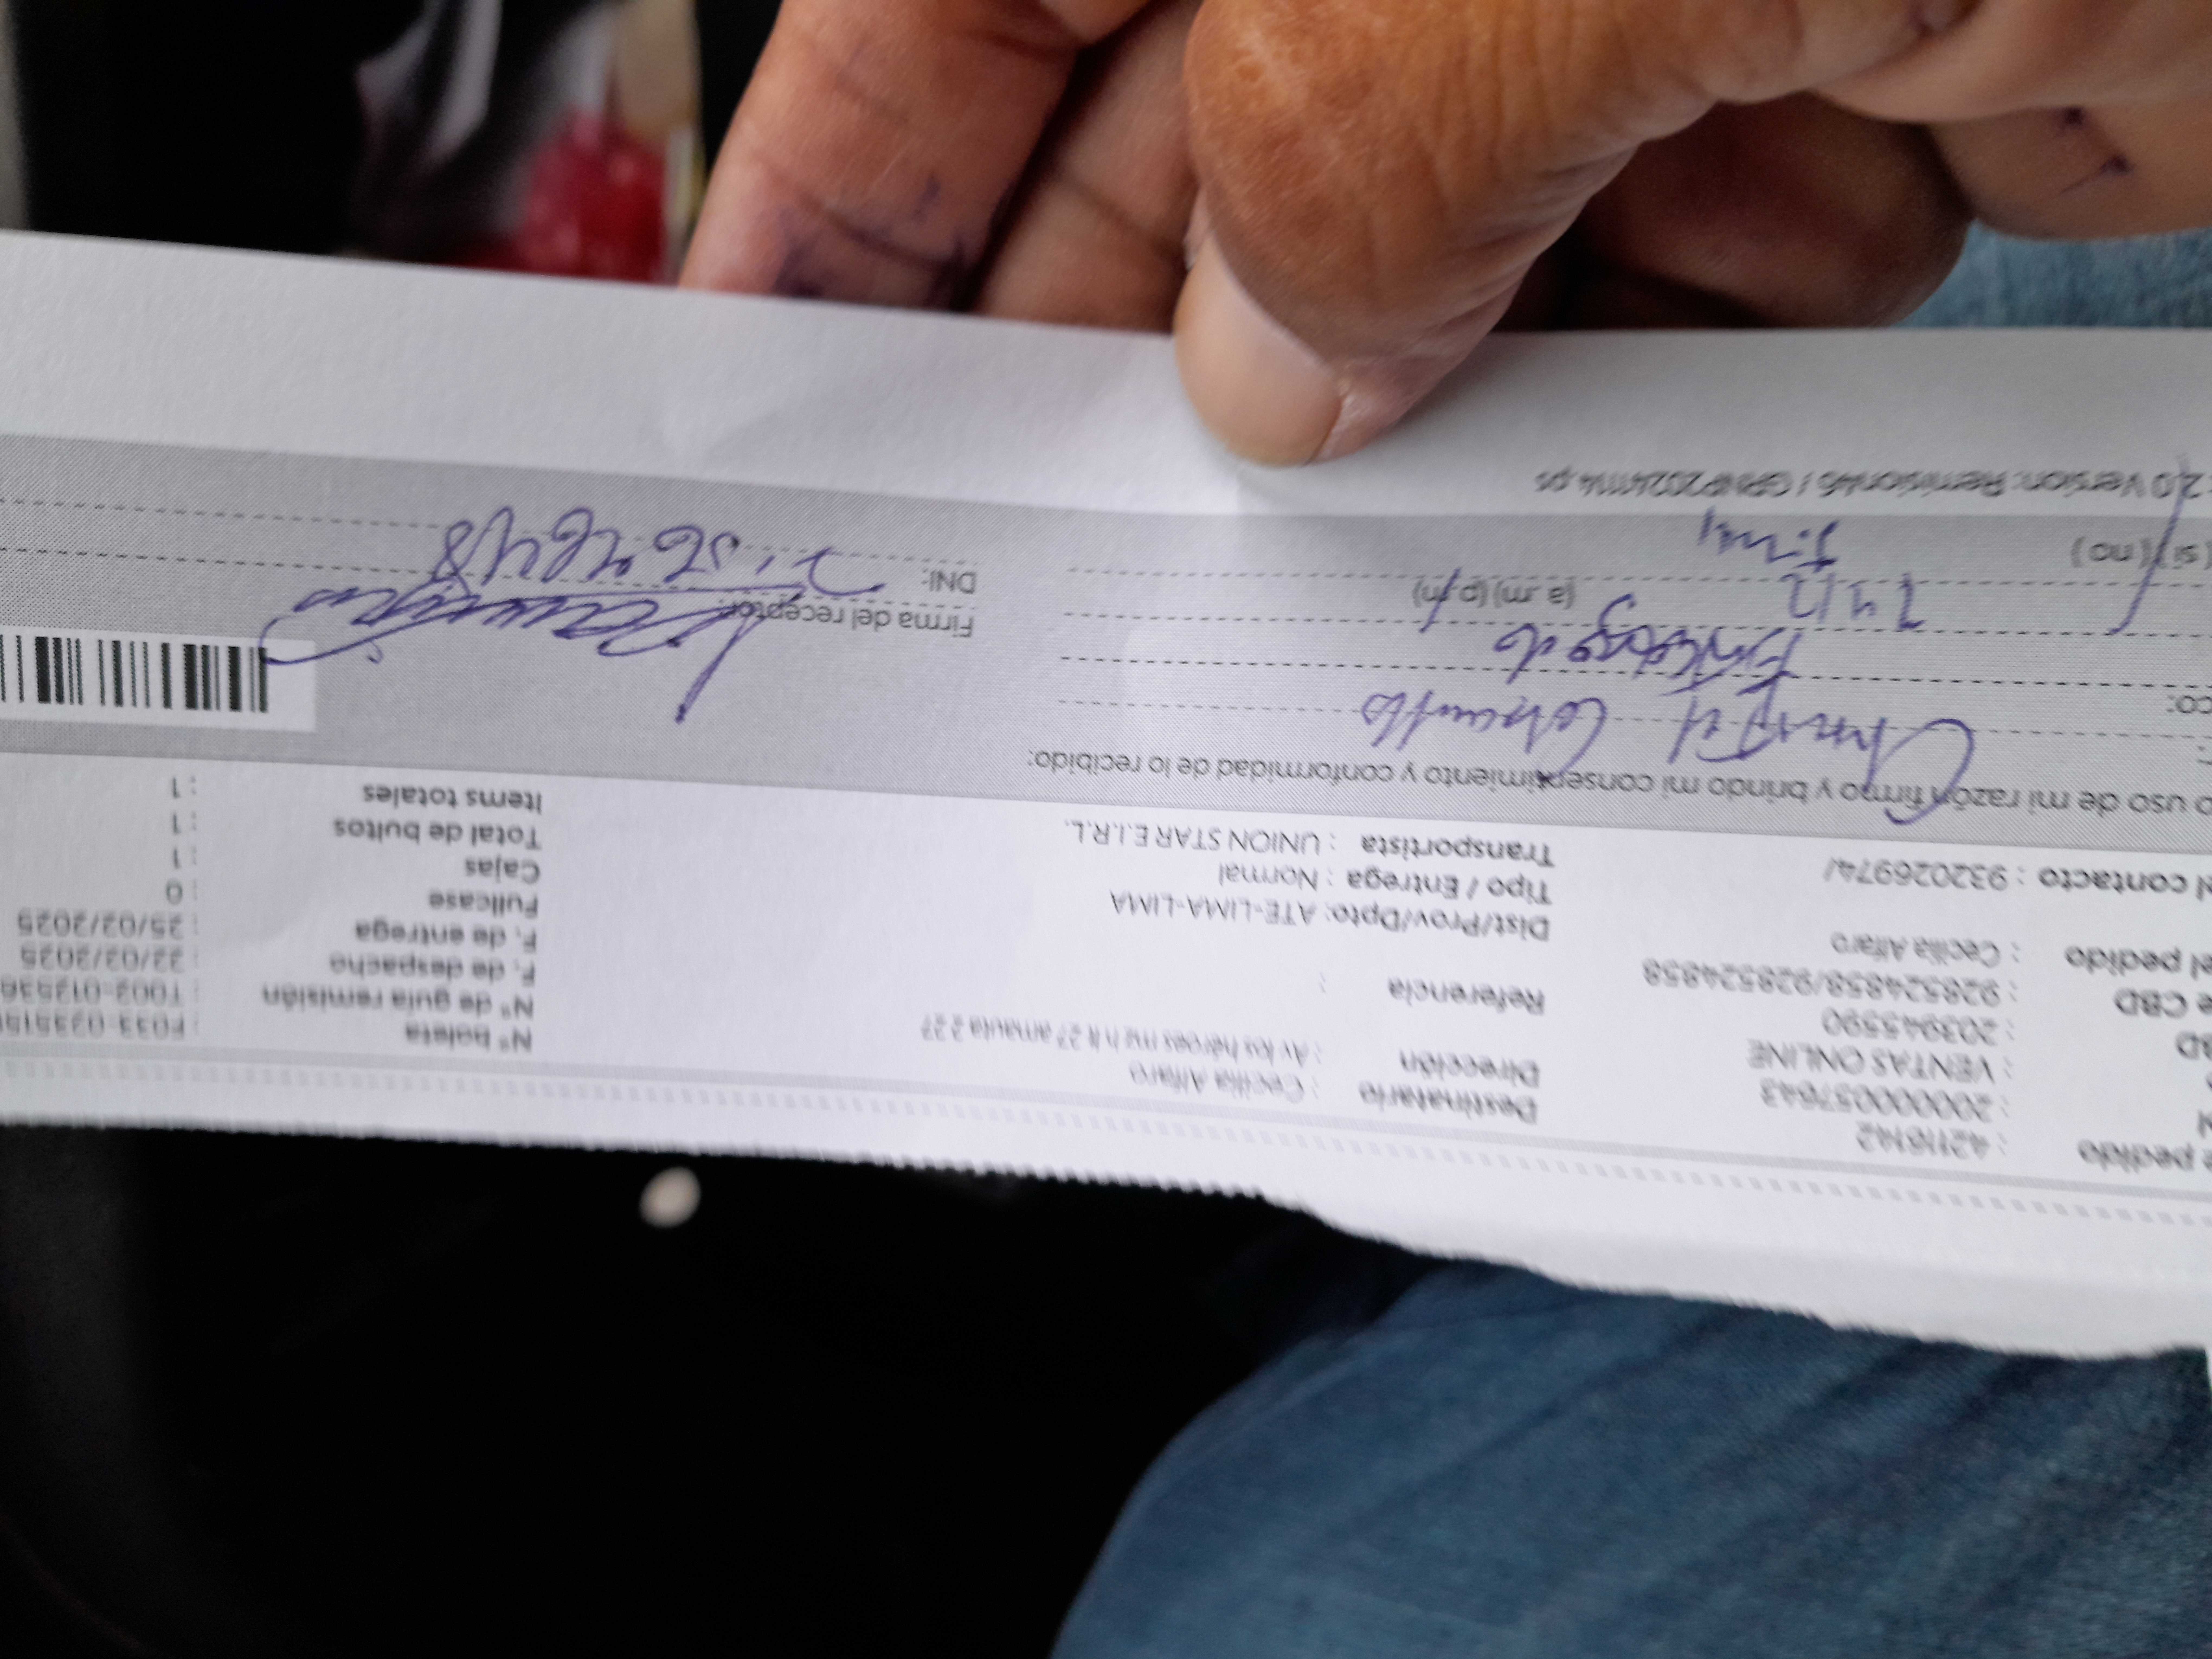 e pedido : 42116142
: 2000057643
: VENTAS ONLINE
BD : 203945590
e CBD : 928524858/928524858
el pedido : Cecilia Alfaro
el contacto : 932026974/
Destinatario : Cecilia Alfaro
Dirección : Av los héroes mz h lt 27 amauta 2 27
Referencia :
Dist/Prov/Dpto: ATE-LIMA-LIMA
Tipo / Entrega : Normal
Transportista : UNION STAR E.I.R.L.
N° boleta : F033-023515
N° de guía remisión : T002-012536
F. de despacho : 22/02/2025
F. de entrega : 25/02/2025
Fullcase : 0
Cajas : 1
Total de bultos : 1
Items totales : 1
o uso de mi razón firmo y brindo mi consentimiento y conformidad de lo recibido:
co:
Encargado
(a .m) (p.m)
(si) (no)
Firma del receptor:
DNI:
2.0 Version: Remision46 / GRNP 20241114.ps